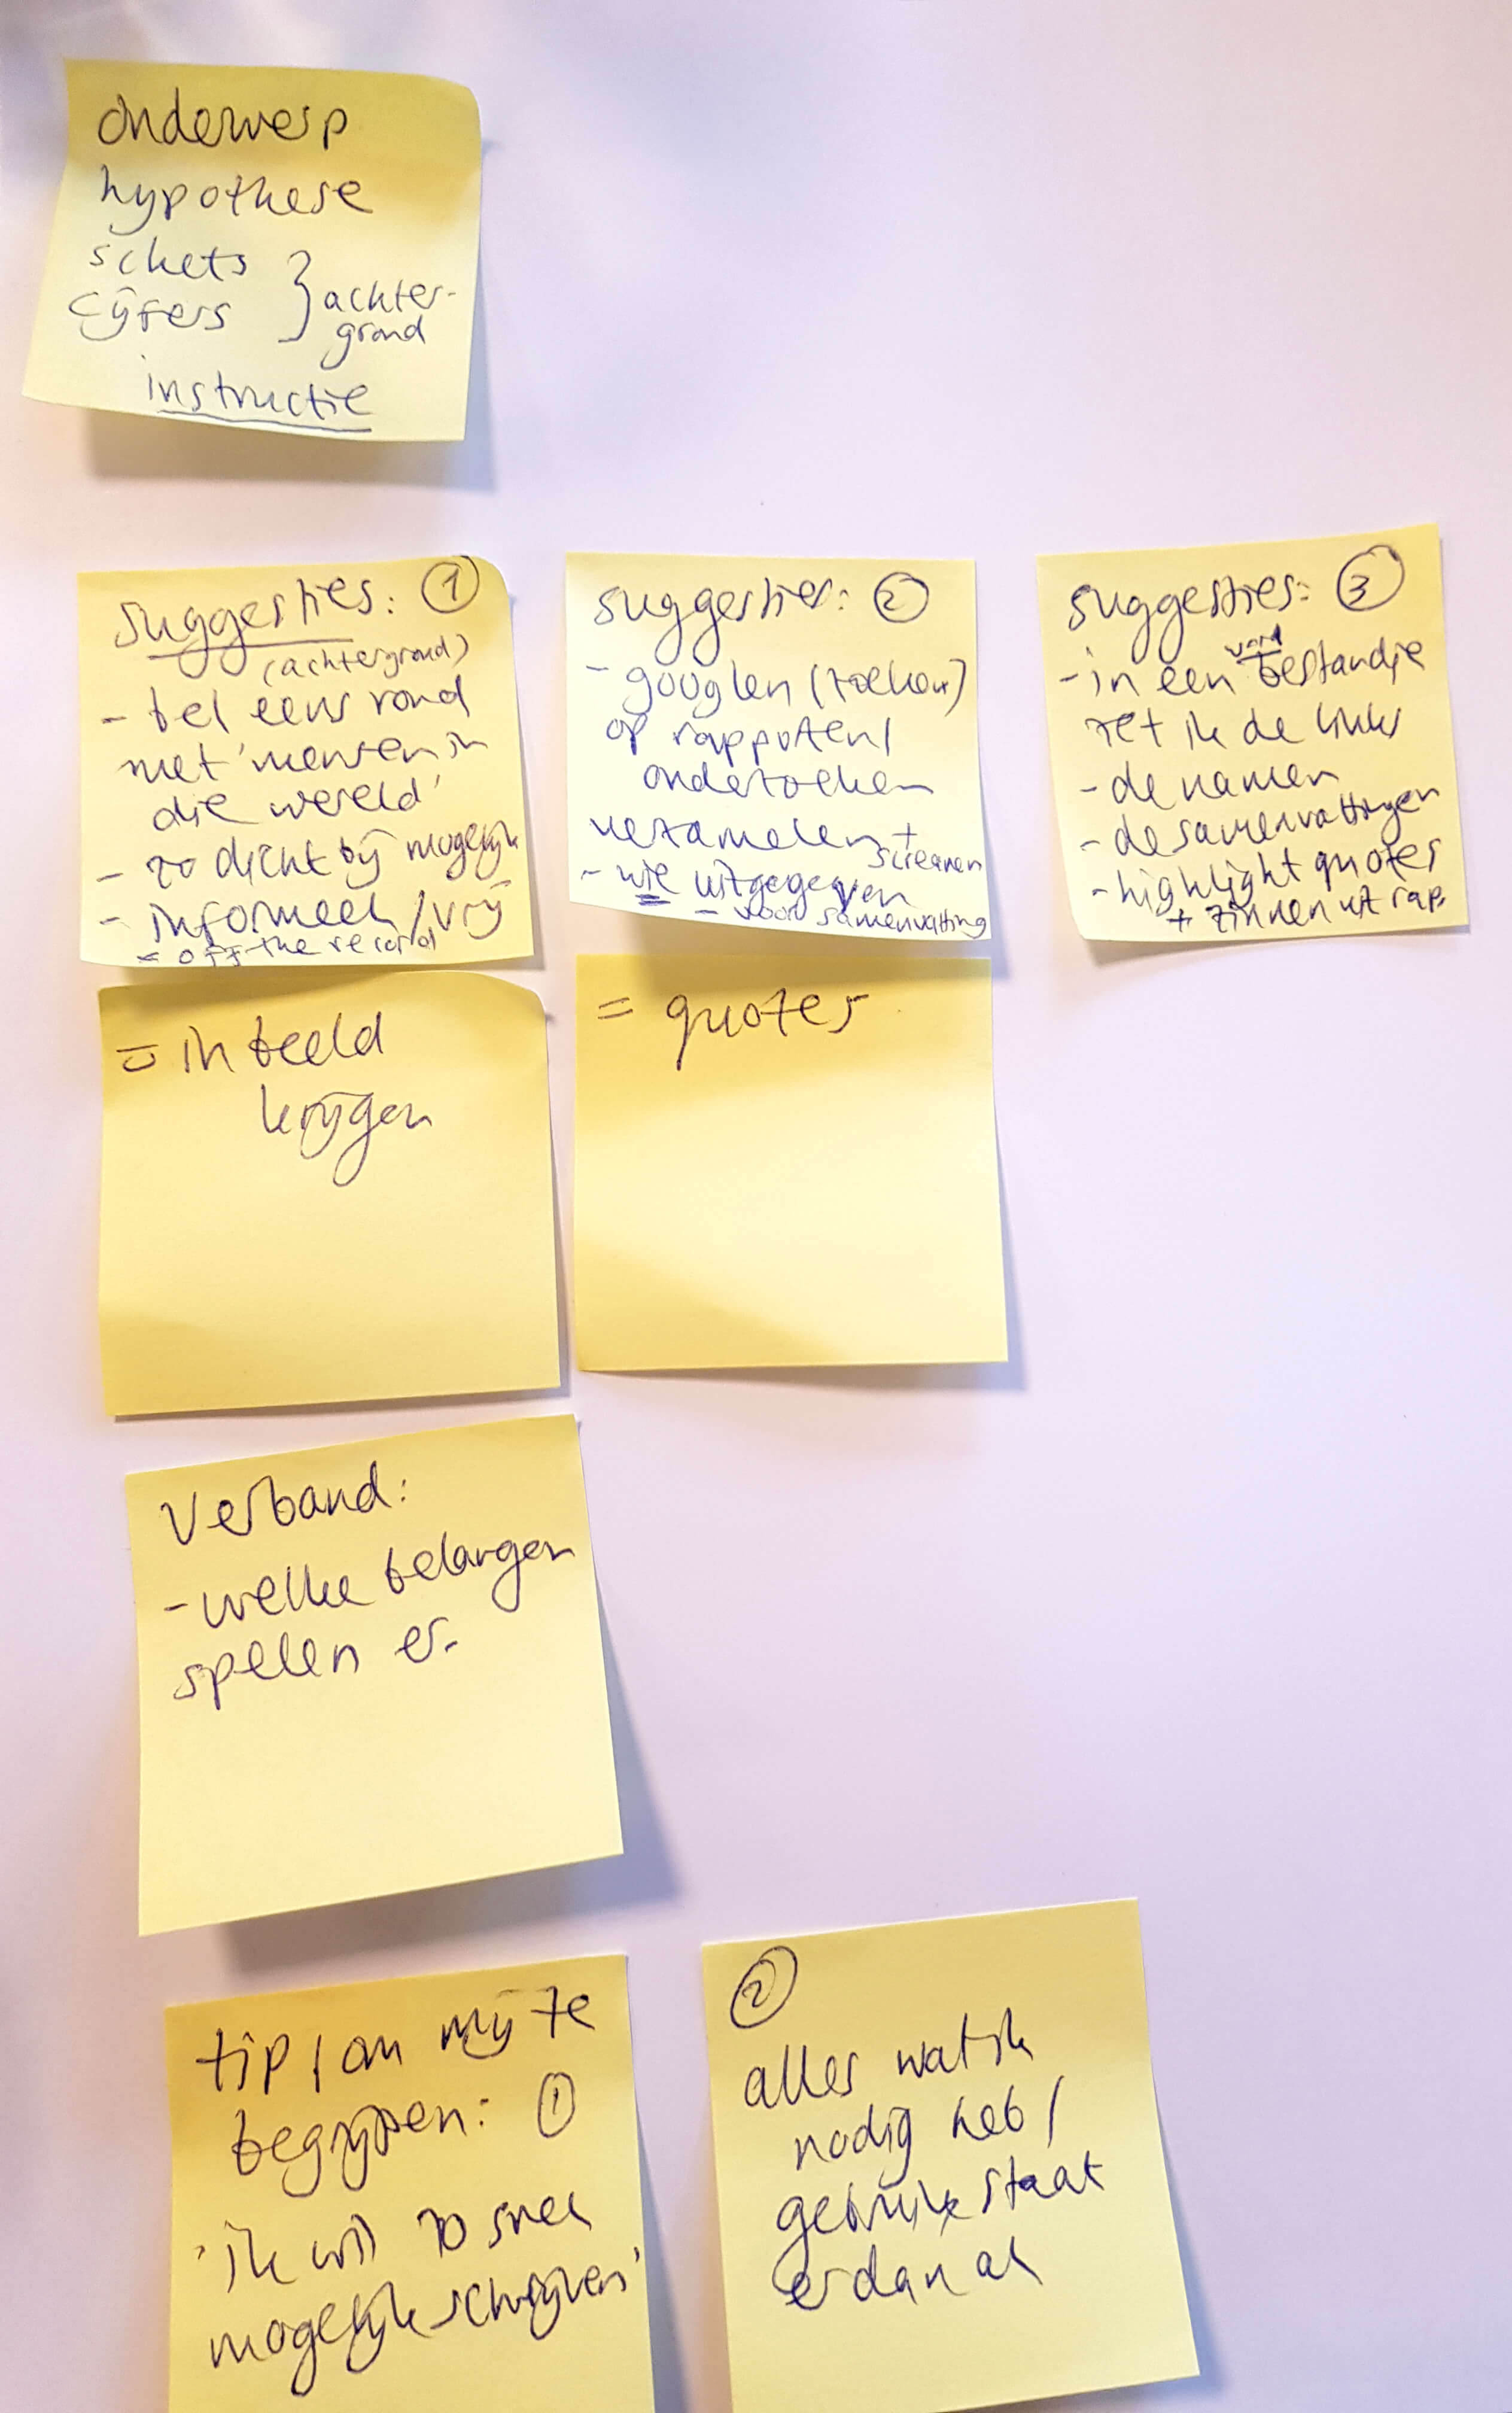 onderwerp
hypothese
schets
cijfers } achter-
grond
instructie
suggesties: ①
(achtergrond)
- bel eens rond
met 'mensen in
die wereld'
- zo dicht bij mogelijk
- informeel / vrij
= off-the record
= in beeld
krijgen
suggesties: ②
- googlen (zoeken)
op rapporten/
onderzoeken
verzamelen +
screenen
- wie uitgegeven
- voor samenvatting
= quotes
suggesties: ③
word
- in een bestandje
zet ik de links
- de namen
- de samenvattingen
- highlight quotes
+ zinnen uit rap.
Verband:
- welke belangen
spelen er
tip / om mij te
begrijpen: ①
'ik wil zo snel
mogelijk schrijven'
②
alles wat ik
nodig heb /
gebruik staat
er dan al